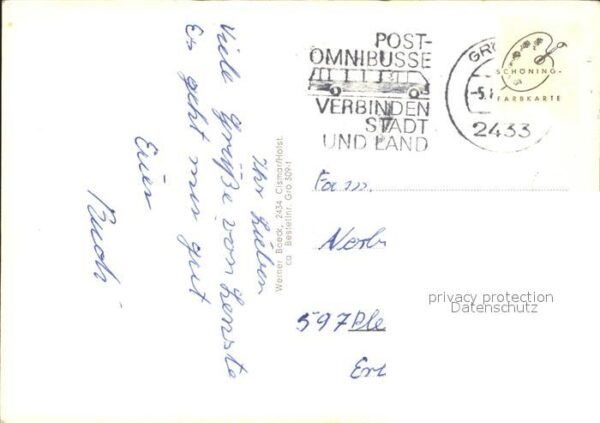 POST-
OMNIBUSSE
VERBINDEN
STADT
UND LAND
GRÖ
-5.
2433
SCHÖNING-
FARBKARTE
Ihr Lieben
Viele Grüße von
Es geht mir gut
Euer
Rudi
Werner Boeck, 2434 Cismar/Holst.
Bestellnr. Grö 309-1
Fam.
Norb
597 Ple
Erl
privacy protection
Datenschutz